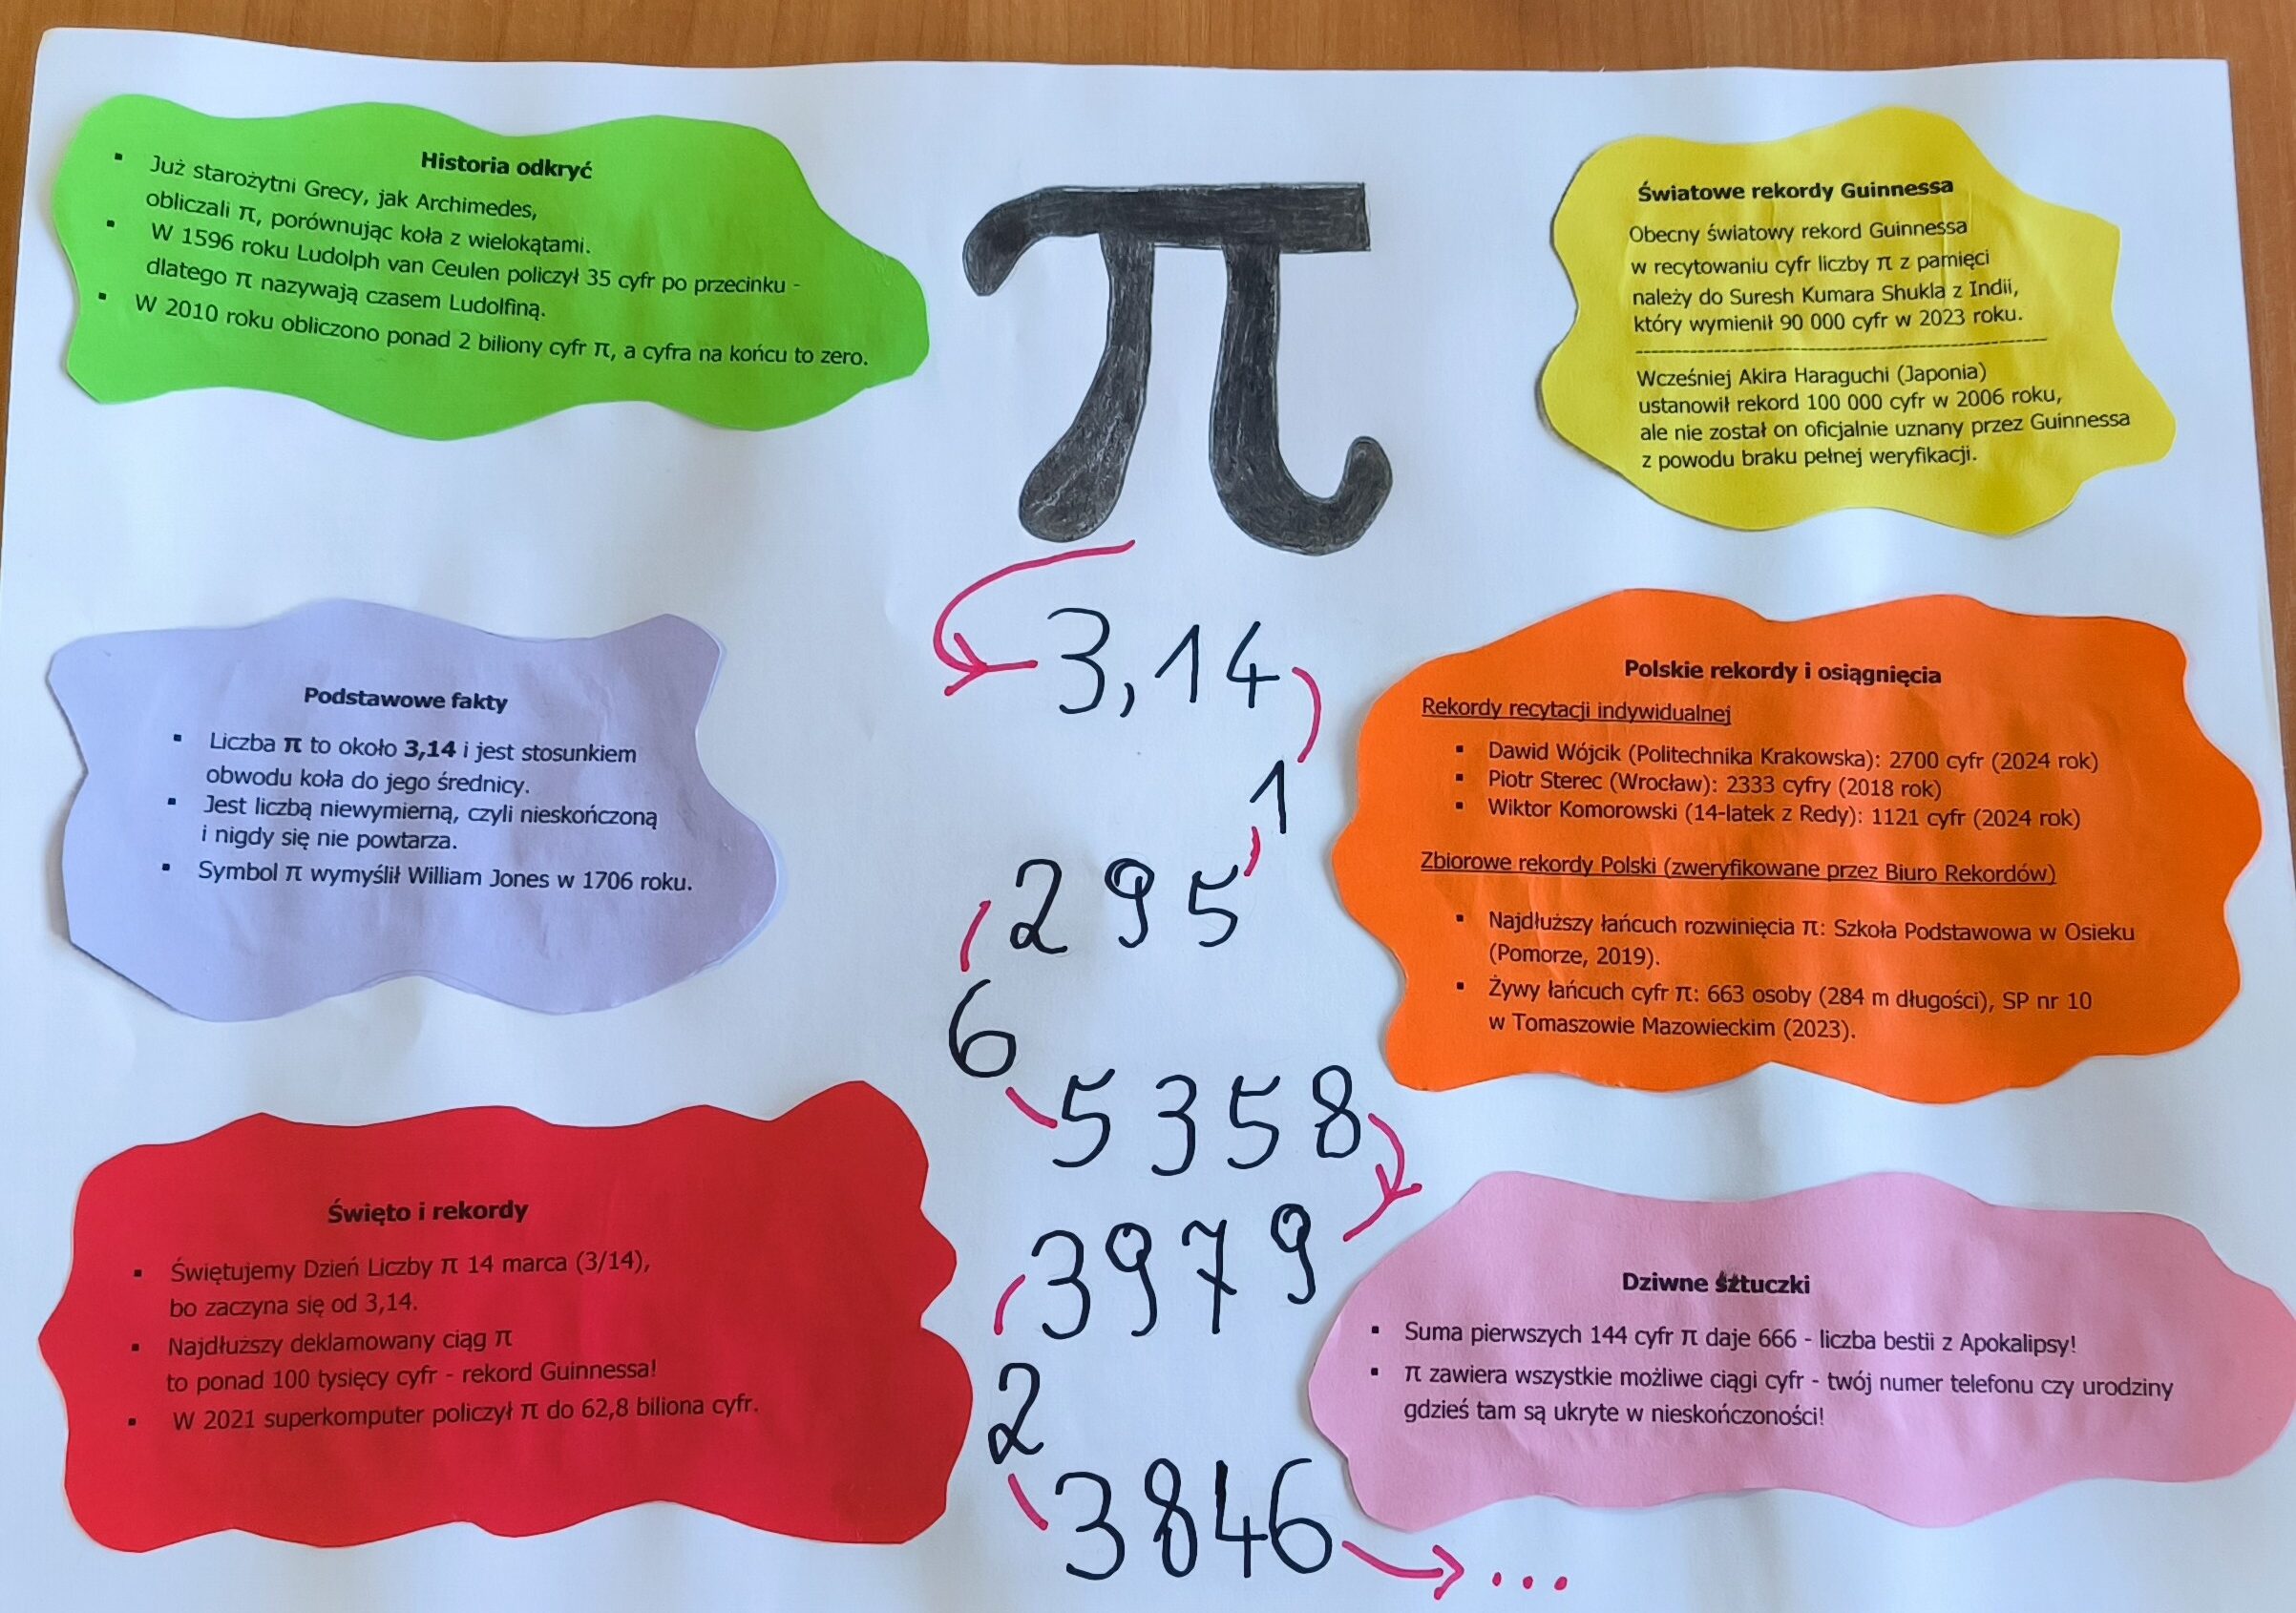 Historia odkryć
▪ Już starożytni Grecy, jak Archimedes,
obliczali π, porównując koła z wielokątami.
▪ W 1596 roku Ludolph van Ceulen policzył 35 cyfr po przecinku -
dlatego π nazywają czasem Ludolfiną.
▪ W 2010 roku obliczono ponad 2 biliony cyfr π, a cyfra na końcu to zero.
Podstawowe fakty
▪ Liczba π to około 3,14 i jest stosunkiem
obwodu koła do jego średnicy.
▪ Jest liczbą niewymierną, czyli nieskończoną
i nigdy się nie powtarza.
▪ Symbol π wymyślił William Jones w 1706 roku.
Święto i rekordy
▪ Świętujemy Dzień Liczby π 14 marca (3/14),
bo zaczyna się od 3,14.
▪ Najdłuższy deklamowany ciąg π
to ponad 100 tysięcy cyfr - rekord Guinnessa!
▪ W 2021 superkomputer policzył π do 62,8 biliona cyfr.
π
3,14
1
295
6
5358
3979
2
3846
...
Światowe rekordy Guinnessa
Obecny światowy rekord Guinnessa
w recytowaniu cyfr liczby π z pamięci
należy do Suresh Kumara Shukla z Indii,
który wymienił 90 000 cyfr w 2023 roku.
Wcześniej Akira Haraguchi (Japonia)
ustanowił rekord 100 000 cyfr w 2006 roku,
ale nie został on oficjalnie uznany przez Guinnessa
z powodu braku pełnej weryfikacji.
Polskie rekordy i osiągnięcia
Rekordy recytacji indywidualnej
▪ Dawid Wójcik (Politechnika Krakowska): 2700 cyfr (2024 rok)
▪ Piotr Sterec (Wrocław): 2333 cyfry (2018 rok)
▪ Wiktor Komorowski (14-latek z Redy): 1121 cyfr (2024 rok)
Zbiorowe rekordy Polski (zweryfikowane przez Biuro Rekordów)
▪ Najdłuższy łańcuch rozwinięcia π: Szkoła Podstawowa w Osieku
(Pomorze, 2019).
▪ Żywy łańcuch cyfr π: 663 osoby (284 m długości), SP nr 10
w Tomaszowie Mazowieckim (2023).
Dziwne sztuczki
▪ Suma pierwszych 144 cyfr π daje 666 - liczba bestii z Apokalipsy!
▪ π zawiera wszystkie możliwe ciągi cyfr - twój numer telefonu czy urodziny
gdzieś tam są ukryte w nieskończoności!